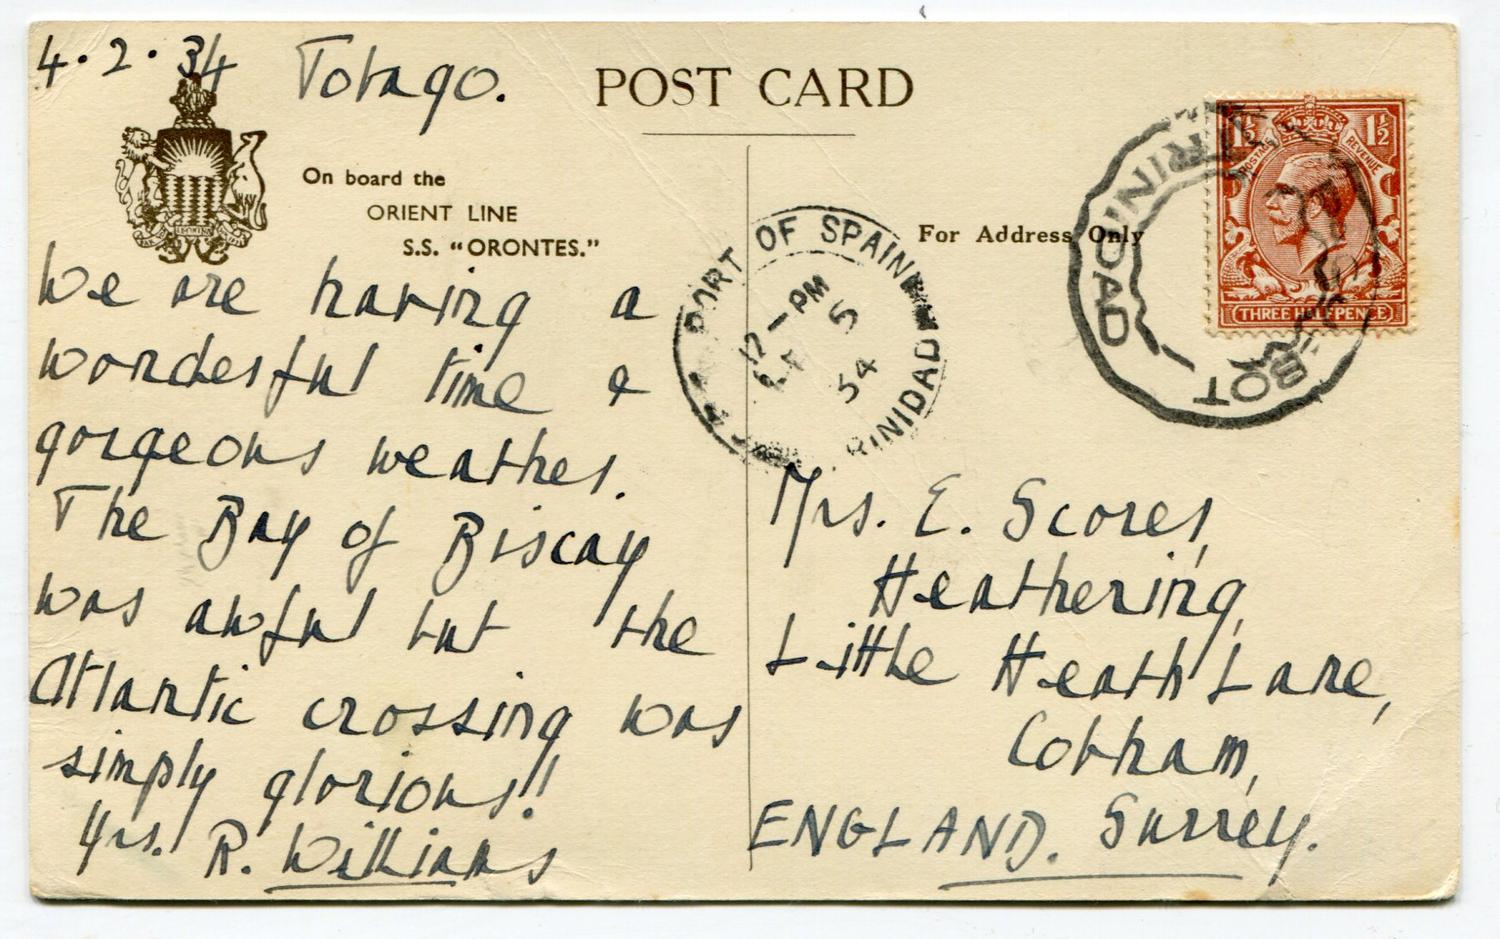 4.2.34 Tobago.
POST CARD
On board the
ORIENT LINE
S.S. "ORONTES."
We are having a
wonderful time &
gorgeous weather.
The Bay of Biscay
was awful but the
Atlantic crossing was
simply glorious!!
Yrs. R. Williams
PORT OF SPAIN
12-PM
5
34
TRINIDAD
For Address Only
TRINIDAD
BOT
1½ 1½
POSTAGE REVENUE
THREE HALFPENCE
Mrs. E. Scores,
Heathering,
Little Heath Lane,
Cobham,
ENGLAND. Surrey.